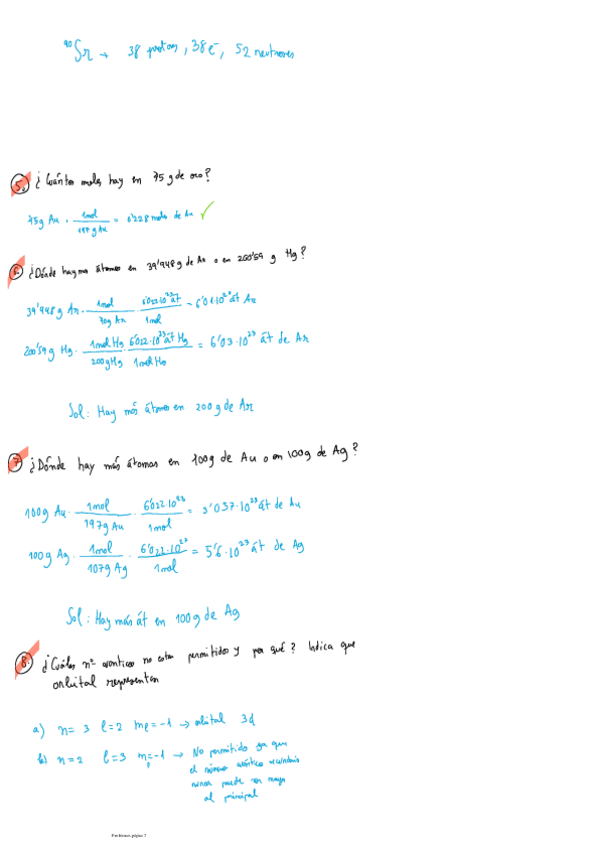 ⁹⁰Sr → 38 protones, 38 e⁻, 52 neutrones
5. ¿Cuántos moles hay en 75 g de oro?
75g Au · 1mol / 197 g Au = 0'228 moles de Au ✓
6. ¿Dónde hay más átomos en 39'948 g de Ar o en 200'59 g Hg?
39'948 g Ar · 1mol / g Ar · 6'022·10²³ át / 1mol = 6'01·10²³ át Ar
200'59 g Hg · 1mol Hg / 200 g Hg · 6'022·10²³ át Hg / 1mol Hg = 6'03·10²³ át de Ar
Sol: Hay más átomos en 200 g de Ar
7. ¿Dónde hay más átomos en 100g de Au o en 100g de Ag?
100g Au · 1mol / 197g Au · 6'022·10²³ / 1mol = 3'037·10²³ át de Au
100g Ag · 1mol / 107g Ag · 6'022·10²³ / 1mol = 5'6·10²³ át de Ag
Sol: Hay más át en 100g de Ag
8. ¿Cuáles nº cuánticos no están permitidos y por qué? Indica que
orbital representan
a) n= 3 l=2 ml=-1 → orbital 3d
b) n=2 l=3 ml=-1 → No permitido ya que
el número cuántico secundario
nunca puede ser mayor
al principal
Problemas página 2